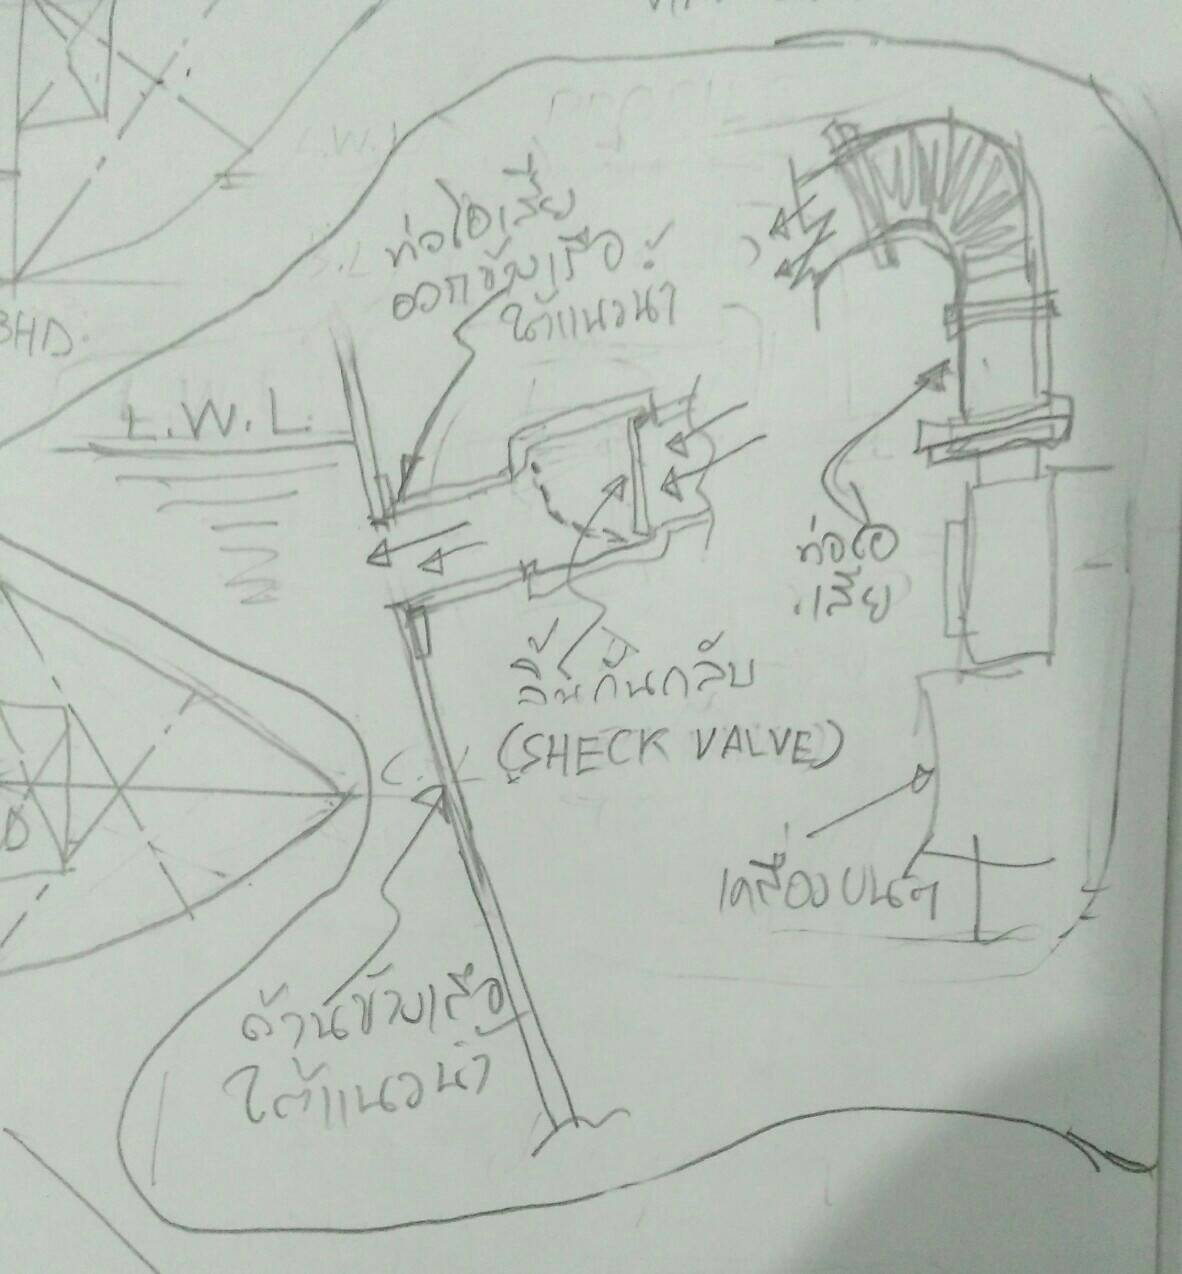 ท่อไอเสีย
ออกข้างเรือ
ใต้แนวน้ำ
BHD.
L.W.L.
ท่อไอ
เสีย
ลิ้นกันกลับ
(SHECK VALVE)
C.L
ด้านข้างเรือ
ใต้แนวน้ำ